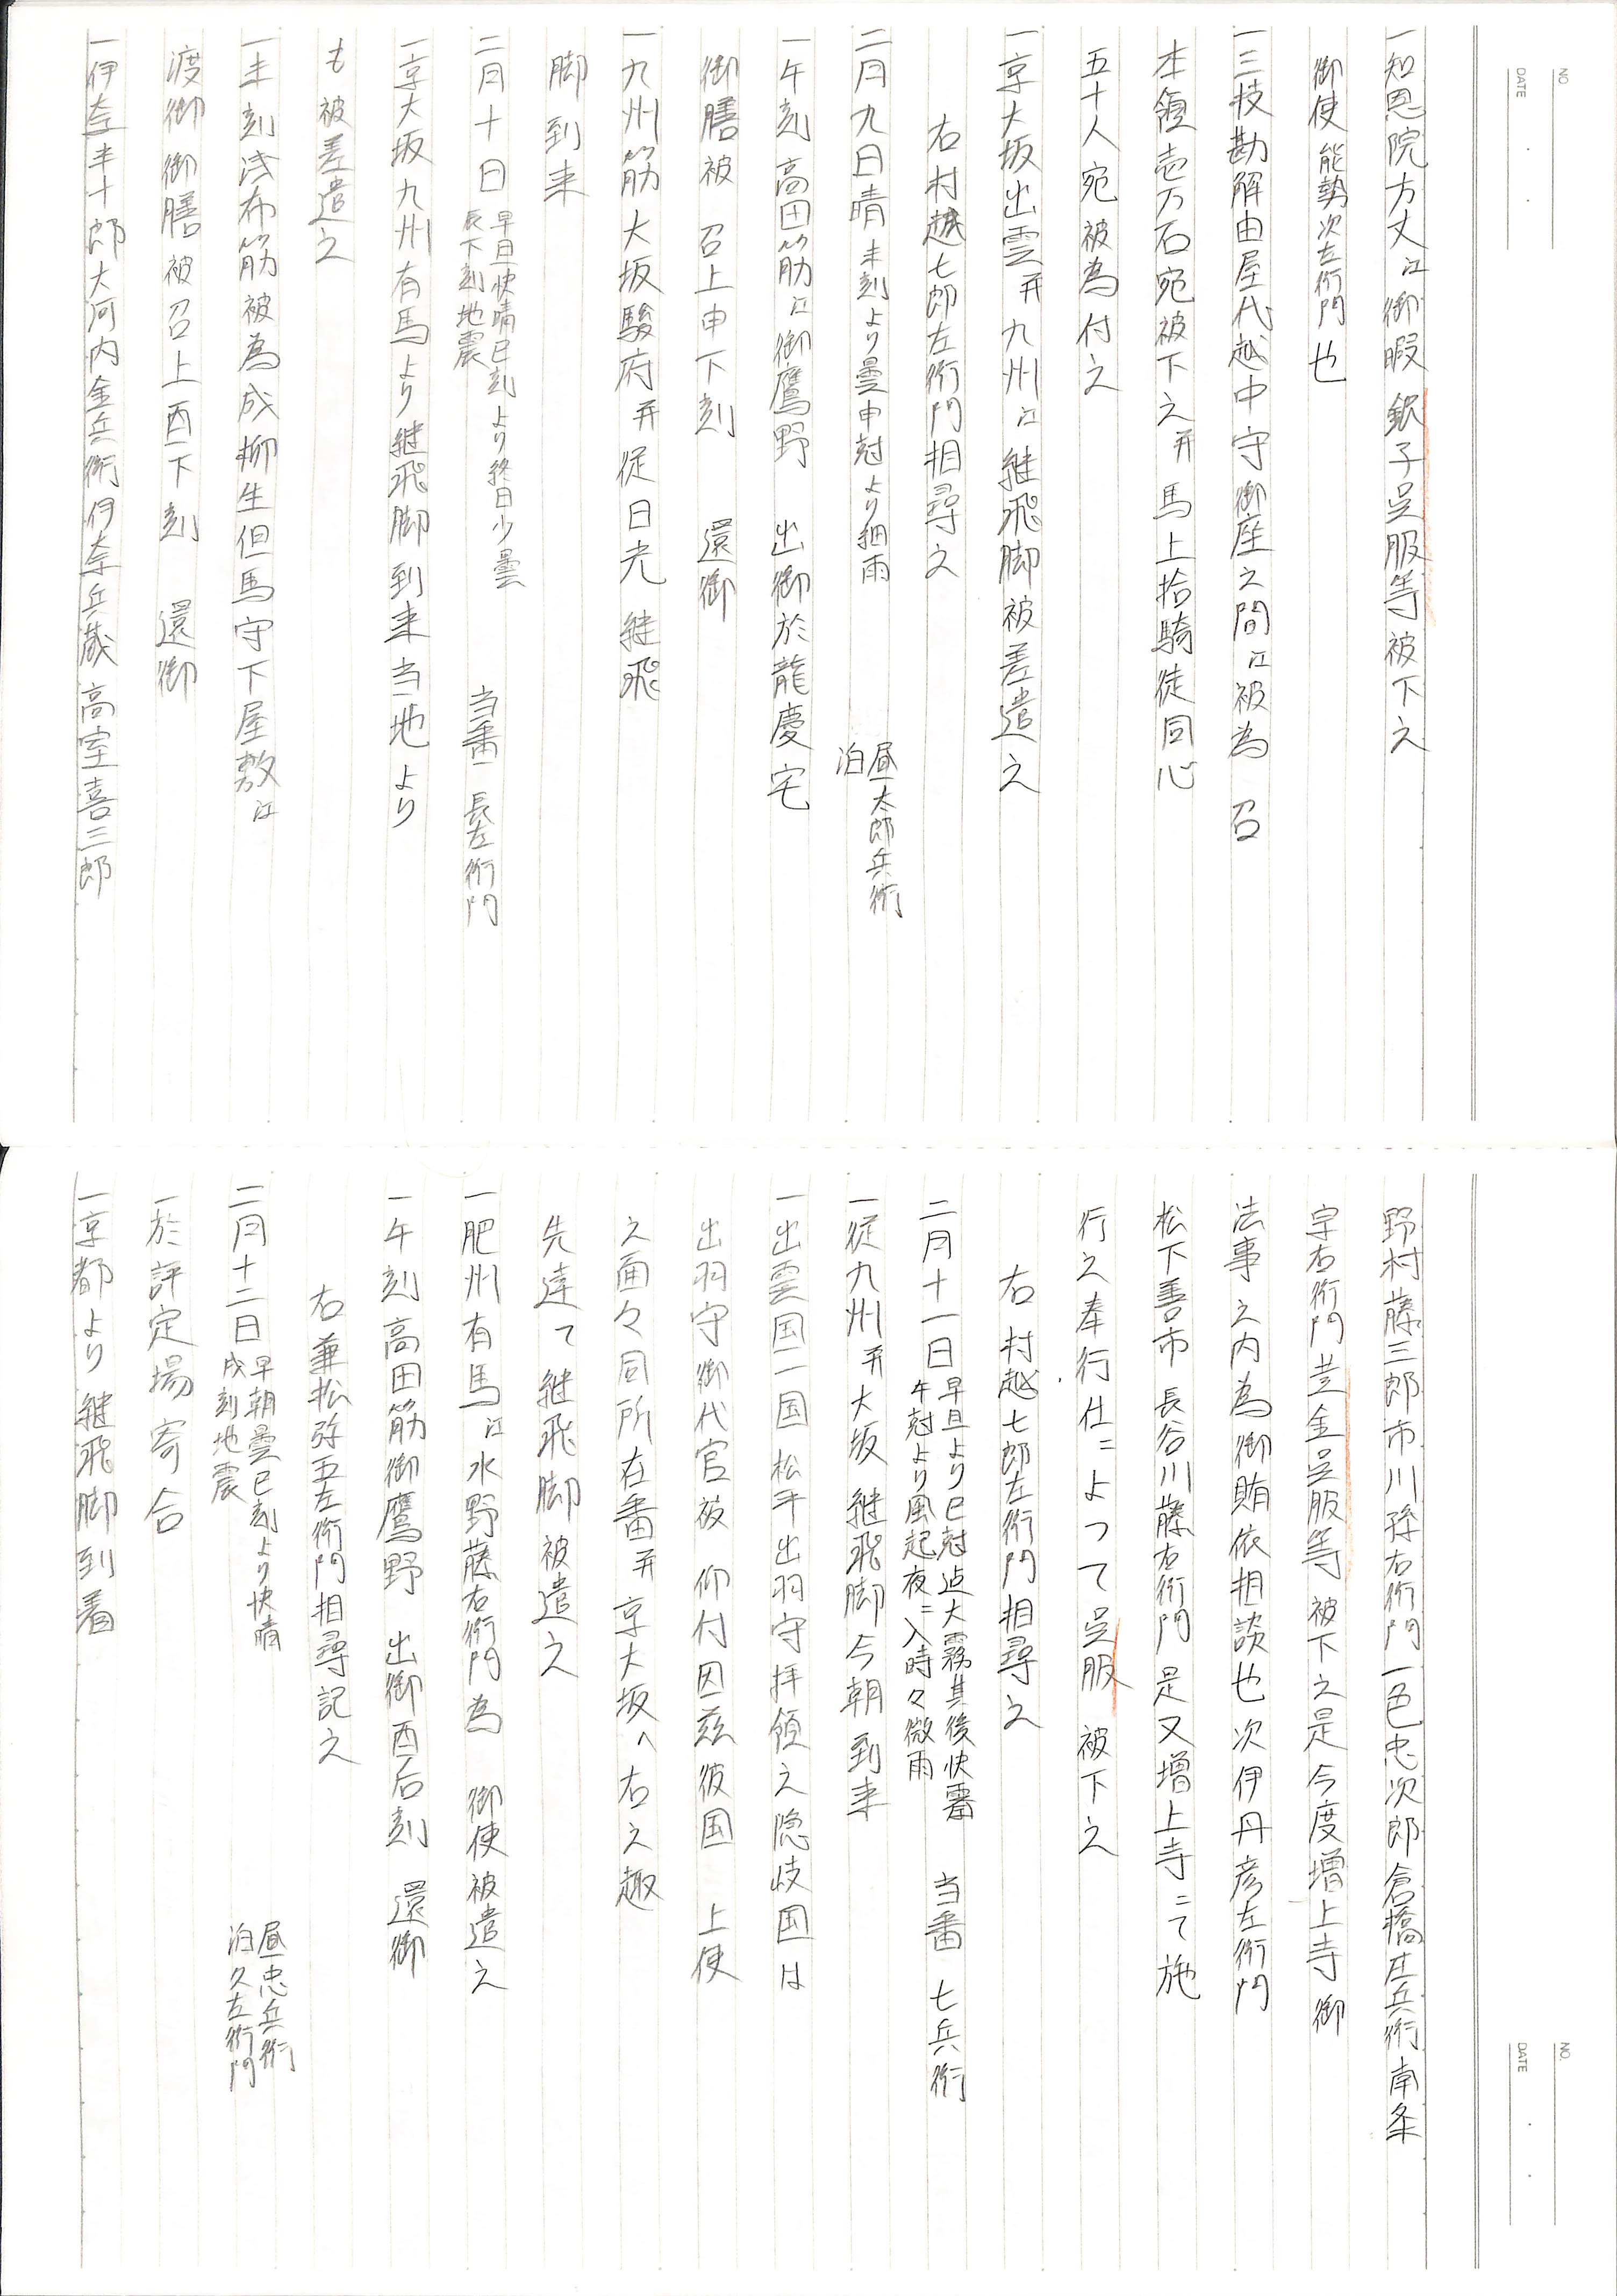 NO.
DATE
一知恩院方丈江御暇 銀子呉服等被下之
御使 能勢次左衛門也
一三枝勘解由屋代越中守御座之間江被為 召
本領壱万石宛被下之并馬上拾騎徒同心
五十人宛被為付之
一京大坂出雲并九州江継飛脚被差遣之
右村越七郎左衛門相尋之
二月九日晴 未刻より曇申尅より細雨 昼 太郎兵衛
泊
一午刻高田筋江御鷹野 出御於龍慶宅
御膳被 召上申下刻 還御
一九州筋大坂駿府并従日光継飛
脚到来
二月十日 早旦快晴巳刻より終日少曇
辰下刻地震 当番 長左衛門
一京大坂九州有馬より継飛脚到来当地より
も被差遣之
一未刻浅布筋被為成柳生但馬守下屋敷江
渡御御膳被召上酉下刻 還御
一伊奈半十郎大河内金兵衛伊奈兵蔵高室喜三郎
NO.
DATE
野村藤三郎市川孫右衛門一色忠次郎倉橋庄兵衛南条
宗右衛門黄金呉服等被下之是今度増上寺御
法事之内為御賄依相談也次伊丹彦左衛門
松下善市長谷川藤右衛門是又増上寺ニて施
行之奉行仕ニよつて呉服 被下之
右村越七郎左衛門相尋之
二月十一日 早旦より巳尅迠大霧其後快霽
午尅より風起夜ニ入時々微雨 当番 七兵衛
一従九州并大坂継飛脚今朝到来
一出雲国一国松平出羽守拝領之隠岐国は
出羽守御代官被 仰付因茲彼国 上使
之面々同所在番并京大坂へ右之趣
先達て継飛脚被遣之
一肥州有馬江水野藤右衛門為 御使被遣之
一午刻高田筋御鷹野 出御酉后刻 還御
右兼松弥五左衛門相尋記之
二月十二日 早朝曇巳刻より快晴
戌刻地震 昼 忠兵衛
泊 久左衛門
一於評定場寄合
一京都より継飛脚到着